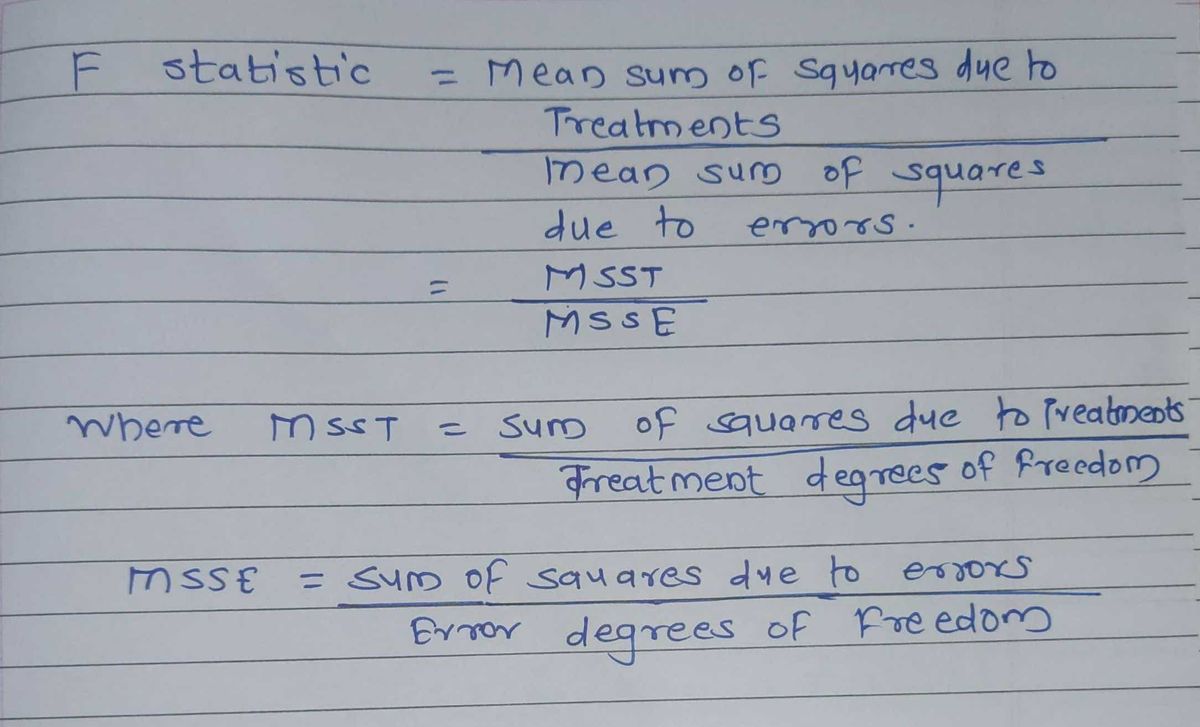 F statistic = Mean sum of squares due to
Treatments
Mean sum of squares
due to errors.
= MSST
MSSE
Where MSST = sum of squares due to Treatments
Treatment degrees of freedom
MSSE = sum of squares due to errors
Error degrees of Freedom